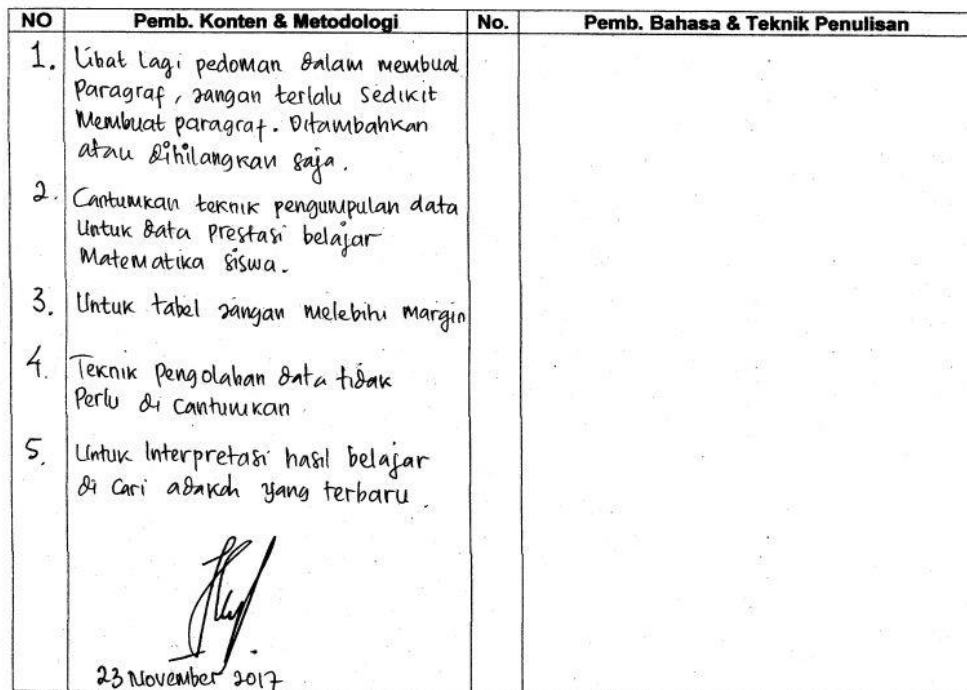 NO Pemb. Konten & Metodologi No. Pemb. Bahasa & Teknik Penulisan
1. Lihat lagi pedoman dalam membuat
Paragraf, Jangan terlalu sedikit
Membuat paragraf. Ditambahkan
atau dihilangkan saja.
2. Cantumkan teknik pengumpulan data
Untuk data Prestasi belajar
Matematika siswa.
3. Untuk tabel Jangan melebihi Margin
4. Teknik Pengolahan data tidak
Perlu di Cantumkan
5. Untuk Interpretasi hasil belajar
di Cari adakah yang terbaru.
23 November 2017